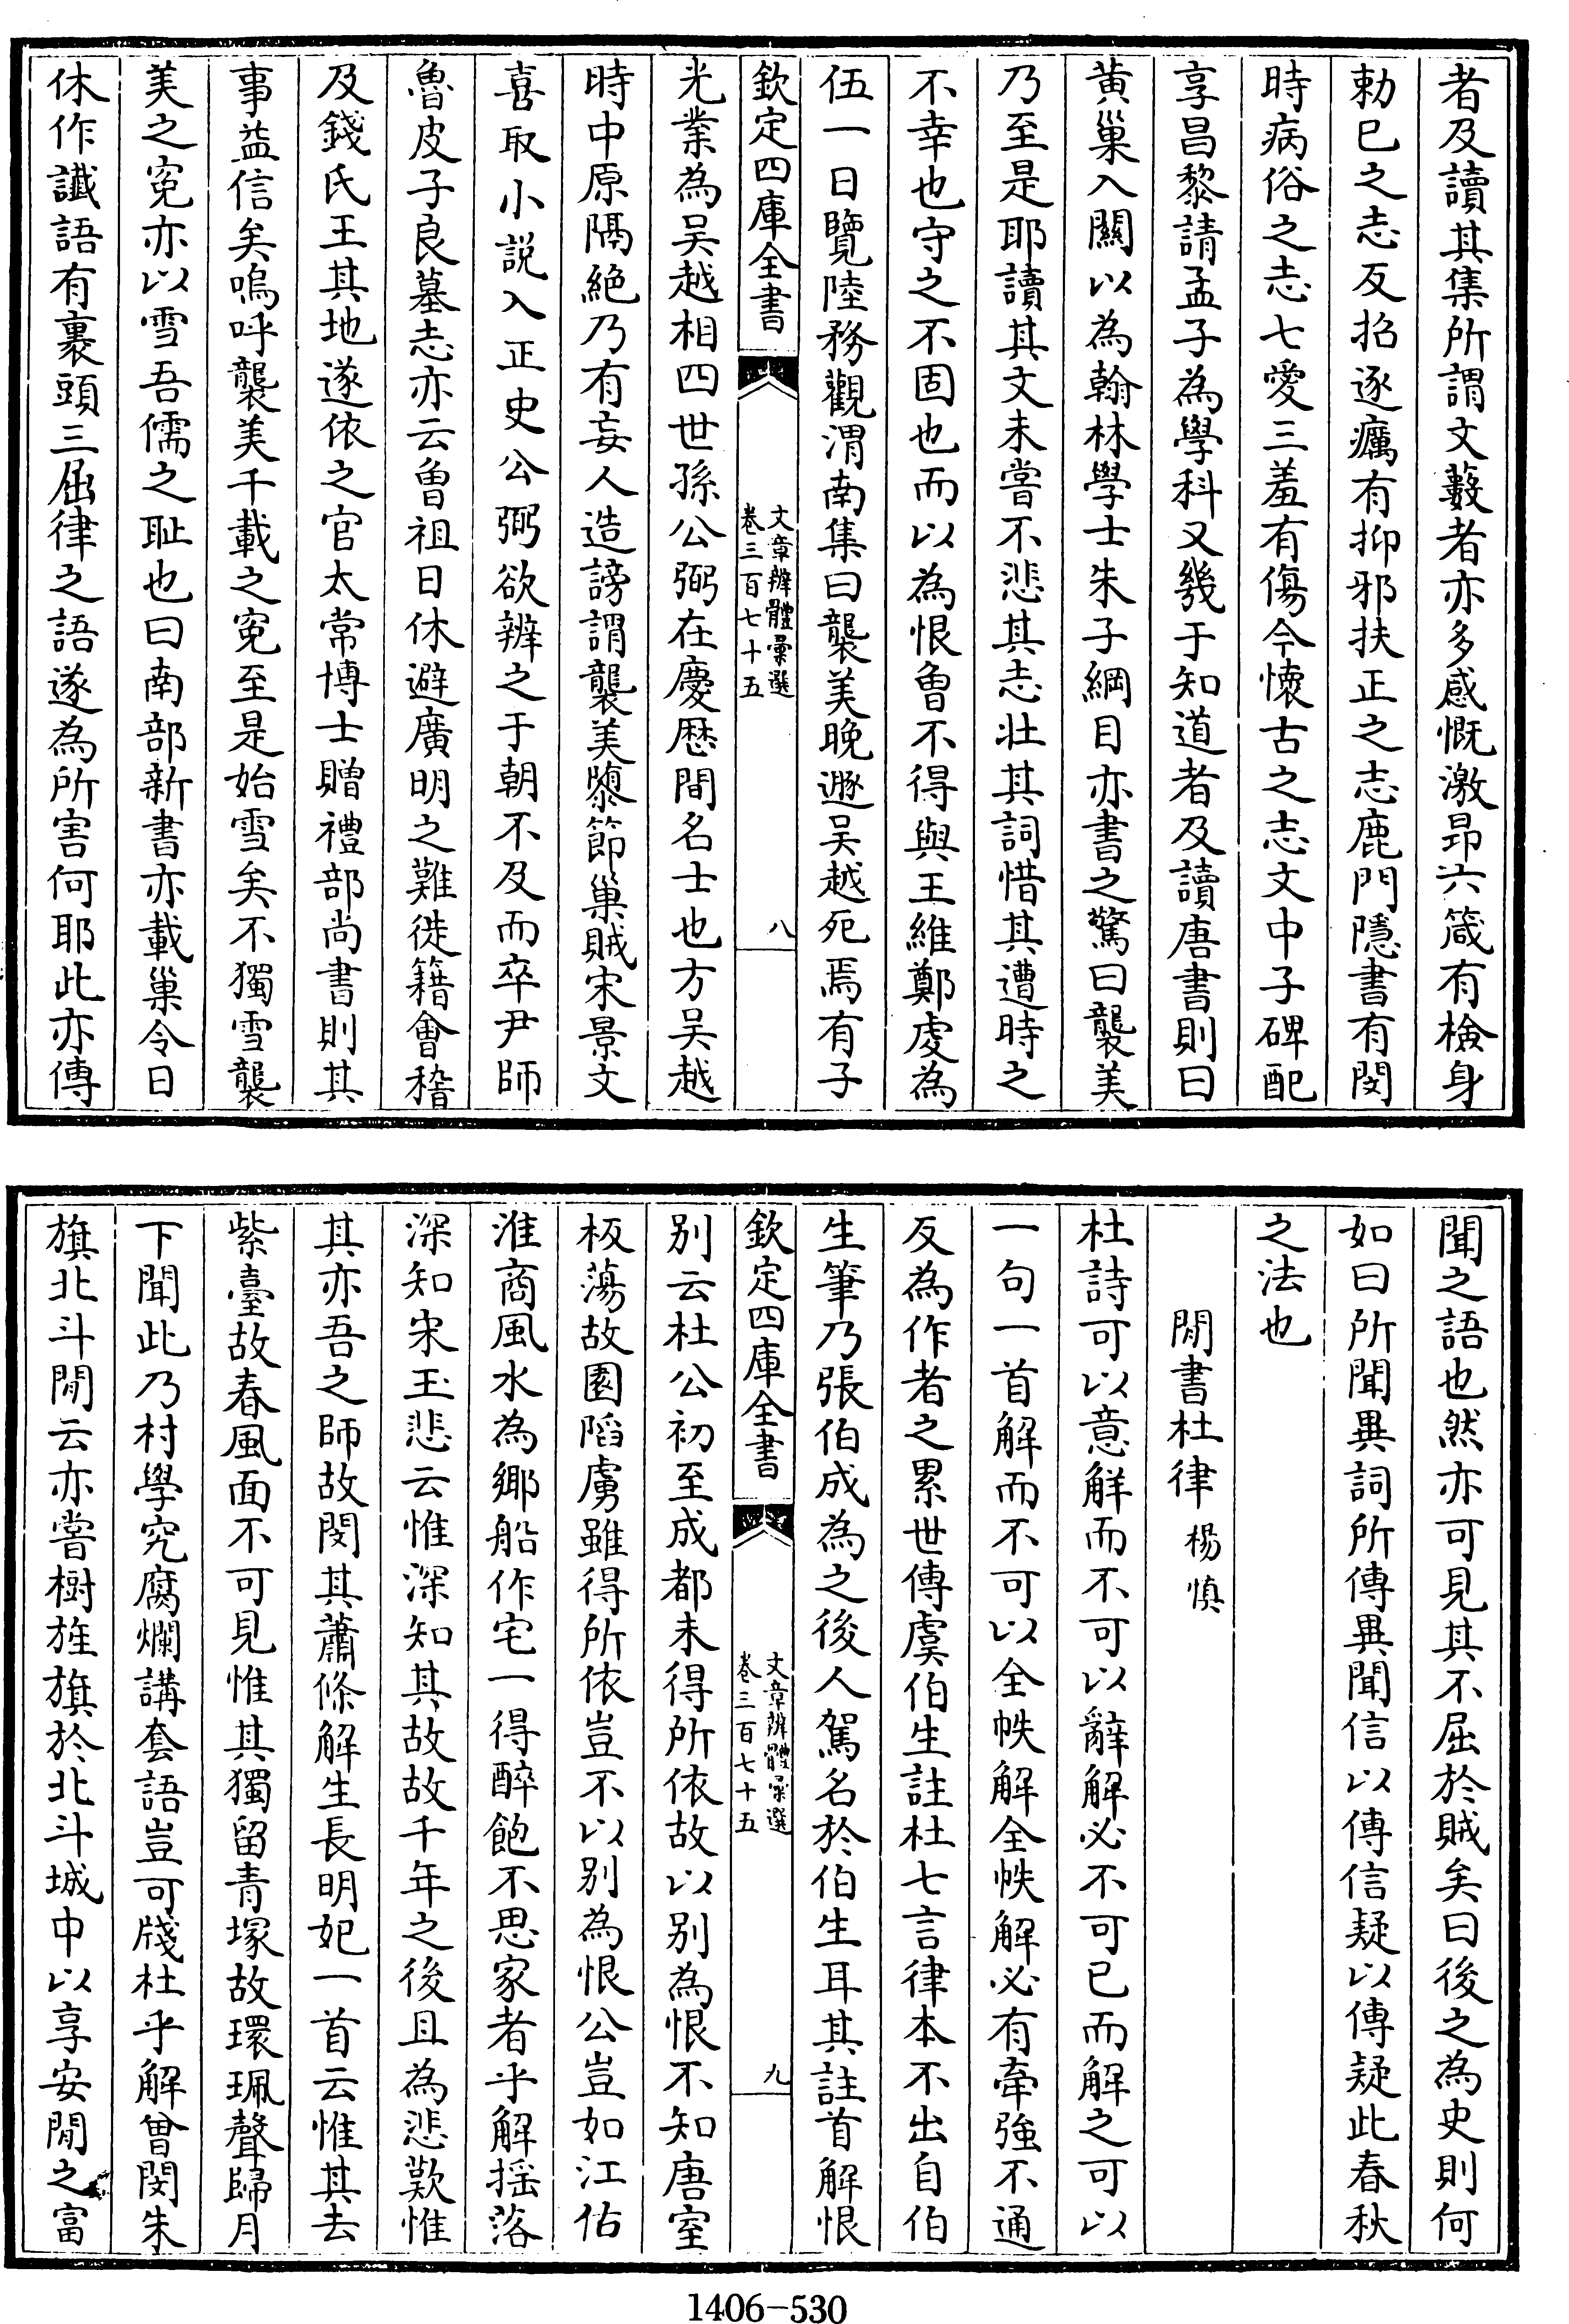 者及讀其集所謂文藪者亦多感慨激昂六箴有檢身
勅已之志反招逐癘有抑邪扶正之志鹿門隱書有閔
時病俗之志七愛三羞有傷今懷古之志文中子碑配
享昌黎請孟子為學科又幾于知道者及讀唐書則曰
黄巢入關以為翰林學士朱子綱目亦書之驚曰襲美
乃至是耶讀其文未嘗不悲其志壯其詞惜其遭時之
不幸也守之不固也而以為恨曾不得與王維鄭虔為
伍一日覽陸務觀渭南集曰襲美晚遯吴越死焉有子
欽定四庫全書
文章辨體彙選
卷三百七十五
八
光業為吴越相四世孫公弼在慶歴間名士也方吴越
時中原隔絶乃有妄人造謗謂襲美隳節巢賊宋景文
喜取小説入正史公弼欲辨之于朝不及而卒尹師
魯皮子良墓志亦云曾祖日休避廣明之難徙籍會稽
及錢氏王其地遂依之官太常博士贈禮部尚書則其
事益信矣嗚呼襲美千載之寃至是始雪矣不獨雪襲
美之寃亦以雪吾儒之耻也曰南部新書亦載巢令日
休作讖語有裹頭三屈律之語遂為所害何耶此亦傳
聞之語也然亦可見其不屈於賊矣曰後之為史則何
如曰所聞異詞所傳異聞信以傳信疑以傳疑此春秋
之法也
閒書杜律 楊慎
杜詩可以意解而不可以辭解必不可已而解之可以
一句一首解而不可以全帙解全帙解必有牽強不通
反為作者之累世傳虞伯生註杜七言律本不出自伯
生筆乃張伯成為之後人駕名於伯生耳其註首解恨
欽定四庫全書
文章辨體彙選
卷三百七十五
九
别云杜公初至成都未得所依故以别為恨不知唐室
板蕩故園䧟虜雖得所依豈不以别為恨公豈如江佑
淮商風水為鄉船作宅一得醉飽不思家者乎解揺落
深知宋玉悲云惟深知其故故千年之後且為悲歎惟
其亦吾之師故閔其蕭條解生長明妃一首云惟其去
紫臺故春風面不可見惟其獨留青塚故環珮聲歸月
下聞此乃村學究腐爛講套語豈可牋杜乎解曾閔朱
旗北斗閒云亦嘗樹旌旗於北斗城中以享安閒之富
1406-530